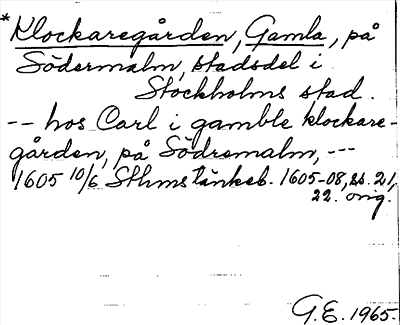 *Klockaregården, Gamla, på
Södermalm, stadsdel i
Stockholms stad.
-- hos Carl i gamble klockare-
gården, på Södremalm, ---
1605 10/6 Sthms tänkeb. 1605-08, ss. 21,
22. orig.
G.E. 1965.